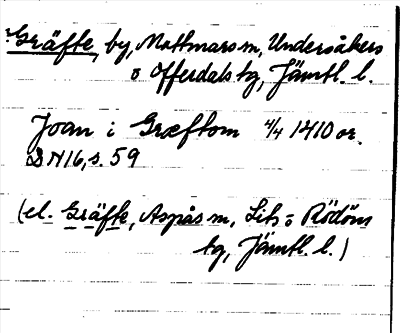 Gräfte, by, Mattmars m, Undersåkers
o Offerdals tg, Jämtl. l.
Joan i Græftom 4/4 1410 or.
DN16, s. 59
(el. Gräfte, Aspås m, Lits o Rödöns
tg, Jämtl. l.)